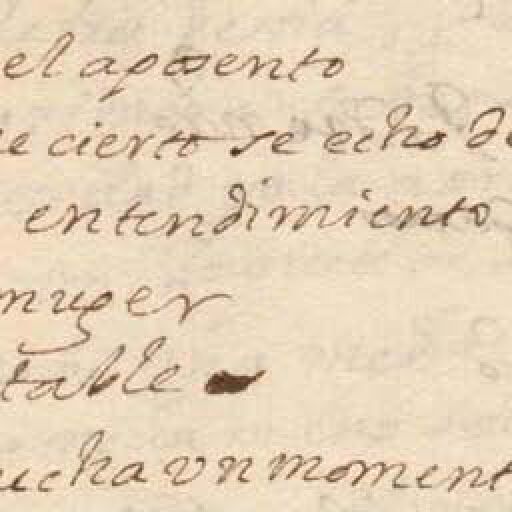 el aposento
e cierto se echo de
entendimiento
muger
table
ucha un moment